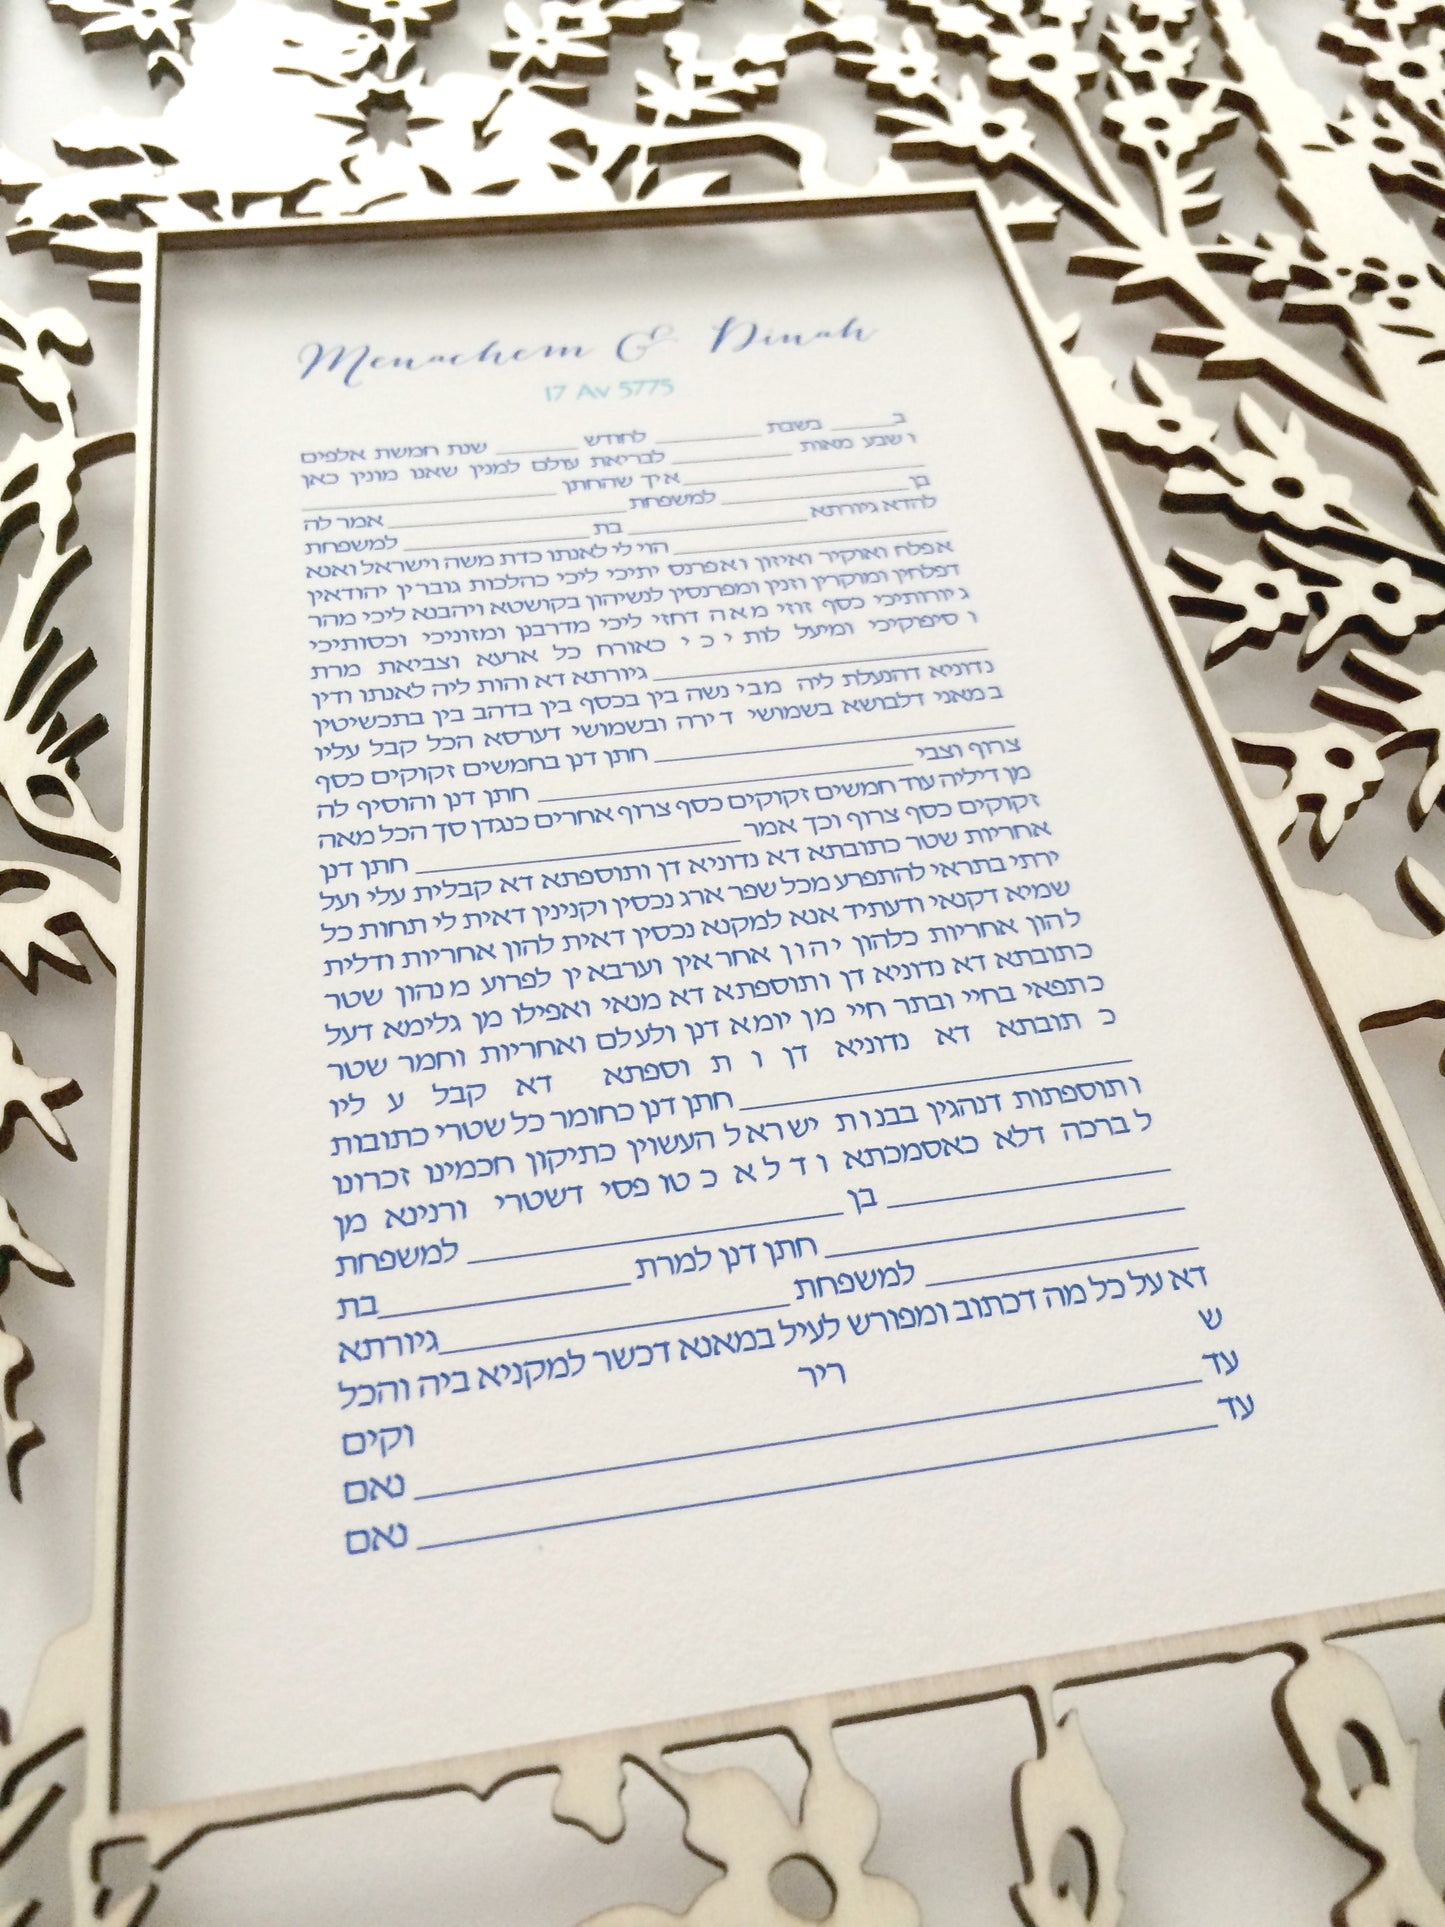 Menachem & Dinah
17 Av 5775
ב______ בשבת ______ לחודש ______ שנת חמשת אלפים
ושבע מאות ______ לבריאת עולם למנין שאנו מונין כאן
______ איך שהחתן ______
בן ______ למשפחת ______ אמר לה
להדא גיורתא ______ בת ______ למשפחת
______ הוי לי לאנתו כדת משה וישראל ואנא
אפלח ואוקיר ואיזון ואפרנס יתיכי ליכי כהלכות גוברין יהודאין
דפלחין ומוקרין וזנין ומפרנסין לנשיהון בקושטא ויהבנא ליכי מהר
גיורותיכי כסף זוזי מאה דחזי ליכי מדרבנן ומזוניכי וכסותיכי
ו סיפוקיכי ומיעל לות י כ י כאורח כל ארעא וצביאת מרת
______ גיורתא דא והות ליה לאנתו ודין
נדוניא דהנעלת ליה מבי נשה בין בכסף בין בדהב בין בתכשיטין
במאני דלבושא בשמושי דירה ובשמושי דערסא הכל קבל עליו
______ חתן דנן בחמשים זקוקים כסף
צרוף וצבי ______ חתן דנן והוסיף לה
מן דיליה עוד חמשים זקוקים כסף צרוף אחרים כנגדן סך הכל מאה
זקוקים כסף צרוף וכך אמר ______ חתן דנן
אחריות שטר כתובתא דא נדוניא דן ותוספתא דא קבלית עלי ועל
ירתי בתראי להתפרע מכל שפר ארג נכסין וקנינין דאית לי תחות כל
שמיא דקנאי ודעתיד אנא למקנא נכסין דאית להון אחריות ודלית
להון אחריות כלהון יהון אחראין וערבאין לפרוע מנהון שטר
כתובתא דא נדוניא דן ותוספתא דא מנאי ואפילו מן גלימא דעל
כתפאי בחיי ובתר חיי מן יומא דנן ולעלם ואחריות וחמר שטר
כ תובתא דא נדוניא דן ו ת וספתא דא קבל ע ליו
______ חתן דנן כחומר כל שטרי כתובות
ותוספתות דנהגין בבנות ישראל העשוין כתיקון חכמינו זכרונו
לברכה דלא כאסמכתא ו ד ל א כ טו פסי דשטרי ורנינא מן
______ בן ______ למשפחת
______ חתן דנן למרת ______ בת
______ למשפחת ______ גיורתא
דא על כל מה דכתוב ומפורש לעיל במאנא דכשר למקניא ביה והכל
ש ריר וקים
עד ______ נאם
עד ______ נאם